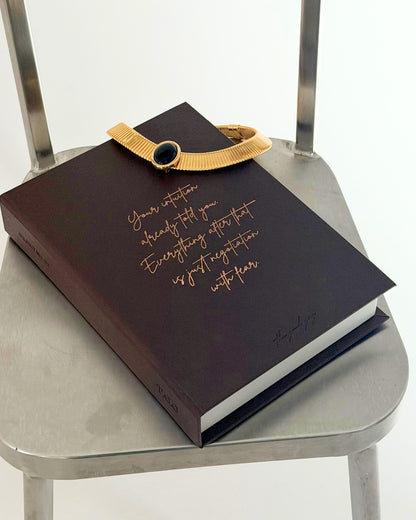 Your intuition
already told you.
Everything after that
is just negotiation
with fear.